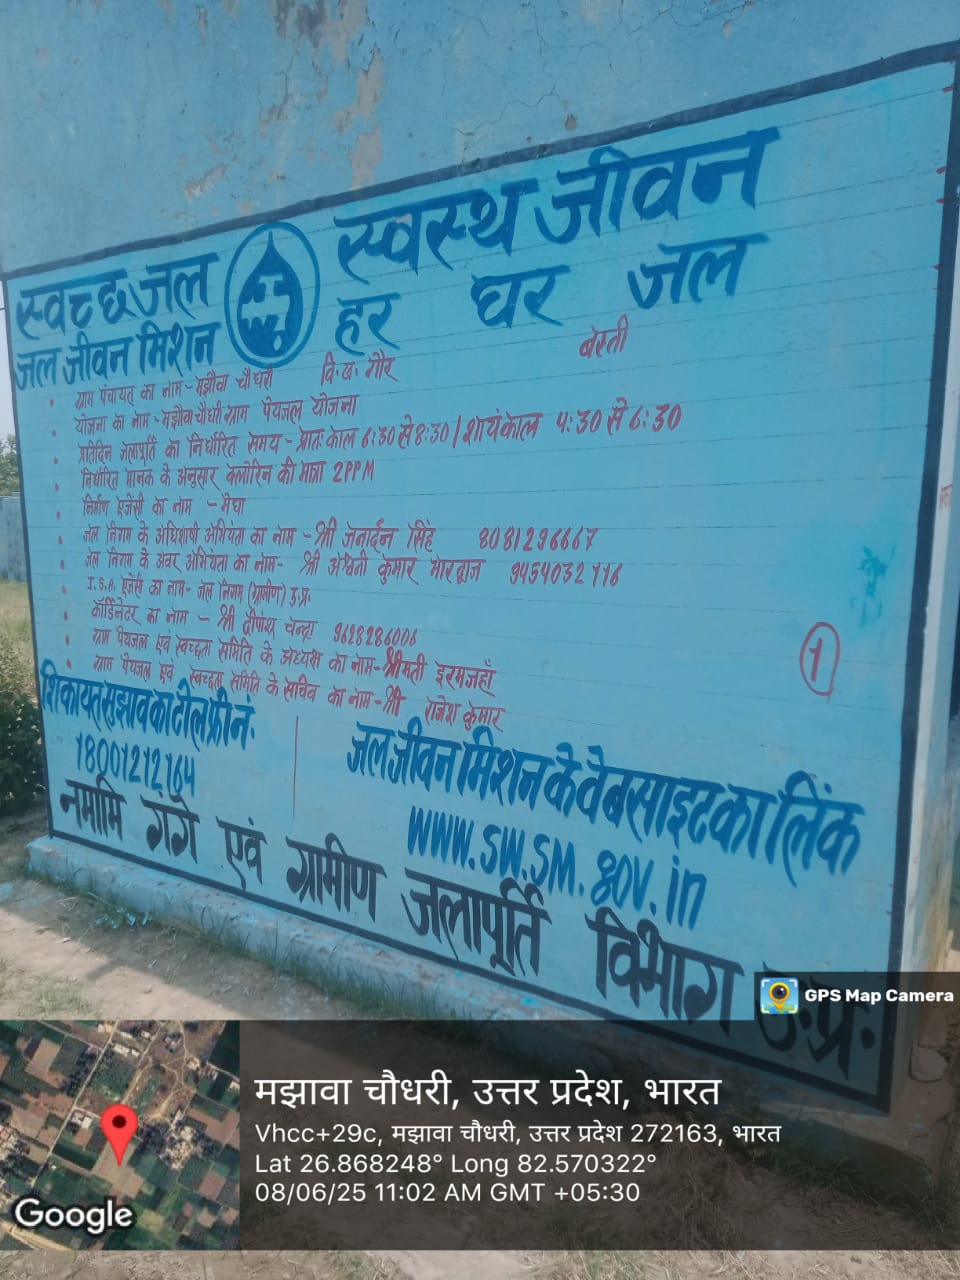 स्वच्छ जल स्वस्थ जीवन
जल जीवन मिशन हर घर जल
ग्राम पंचायत का नाम - मझौवा चौधरी वि.ख. गौर बस्ती
योजना का नाम - मझौवा चौधरी ग्राम पेयजल योजना
प्रतिदिन जलापूर्ति का निर्धारित समय - प्रातः काल 6:30 से 8:30 / शायंकाल 4:30 से 6:30
निर्धारित मानक के अनुसार क्लोरिन की मात्रा 2PPM
निर्माण ऐजेंसी का नाम - मेघा
जल निगम के अधिशाषी अभियंता का नाम - श्री जनार्दन सिंह 8081296667
जल निगम के अवर अभियंता का नाम - श्री अश्वनी कुमार भारद्वाज 9454032116
I.S.A. ऐजेंसी का नाम - जल निगम (ग्रामीण) उ.प्र.
कॉर्डिनेटर का नाम - श्री दीपांश चन्द्रा 9628286006
ग्राम पेयजल एवं स्वच्छता समिति के अध्यक्ष का नाम - श्रीमती इरमजहाँ
ग्राम पेयजल एवं स्वच्छता समिति के सचिव का नाम - श्री राजेश कुमार
1
शिकायत सुझाव का टोल फ्री नं:
18001212164
जल जीवन मिशन के वेबसाइट का लिंक
WWW.SW.SM.gov.in
नमामि गंगे एवं ग्रामीण जलापूर्ति विभाग उ:प्र:
GPS Map Camera
मझावा चौधरी, उत्तर प्रदेश, भारत
Vhcc+29c, मझावा चौधरी, उत्तर प्रदेश 272163, भारत
Lat 26.868248° Long 82.570322°
08/06/25 11:02 AM GMT +05:30
Google